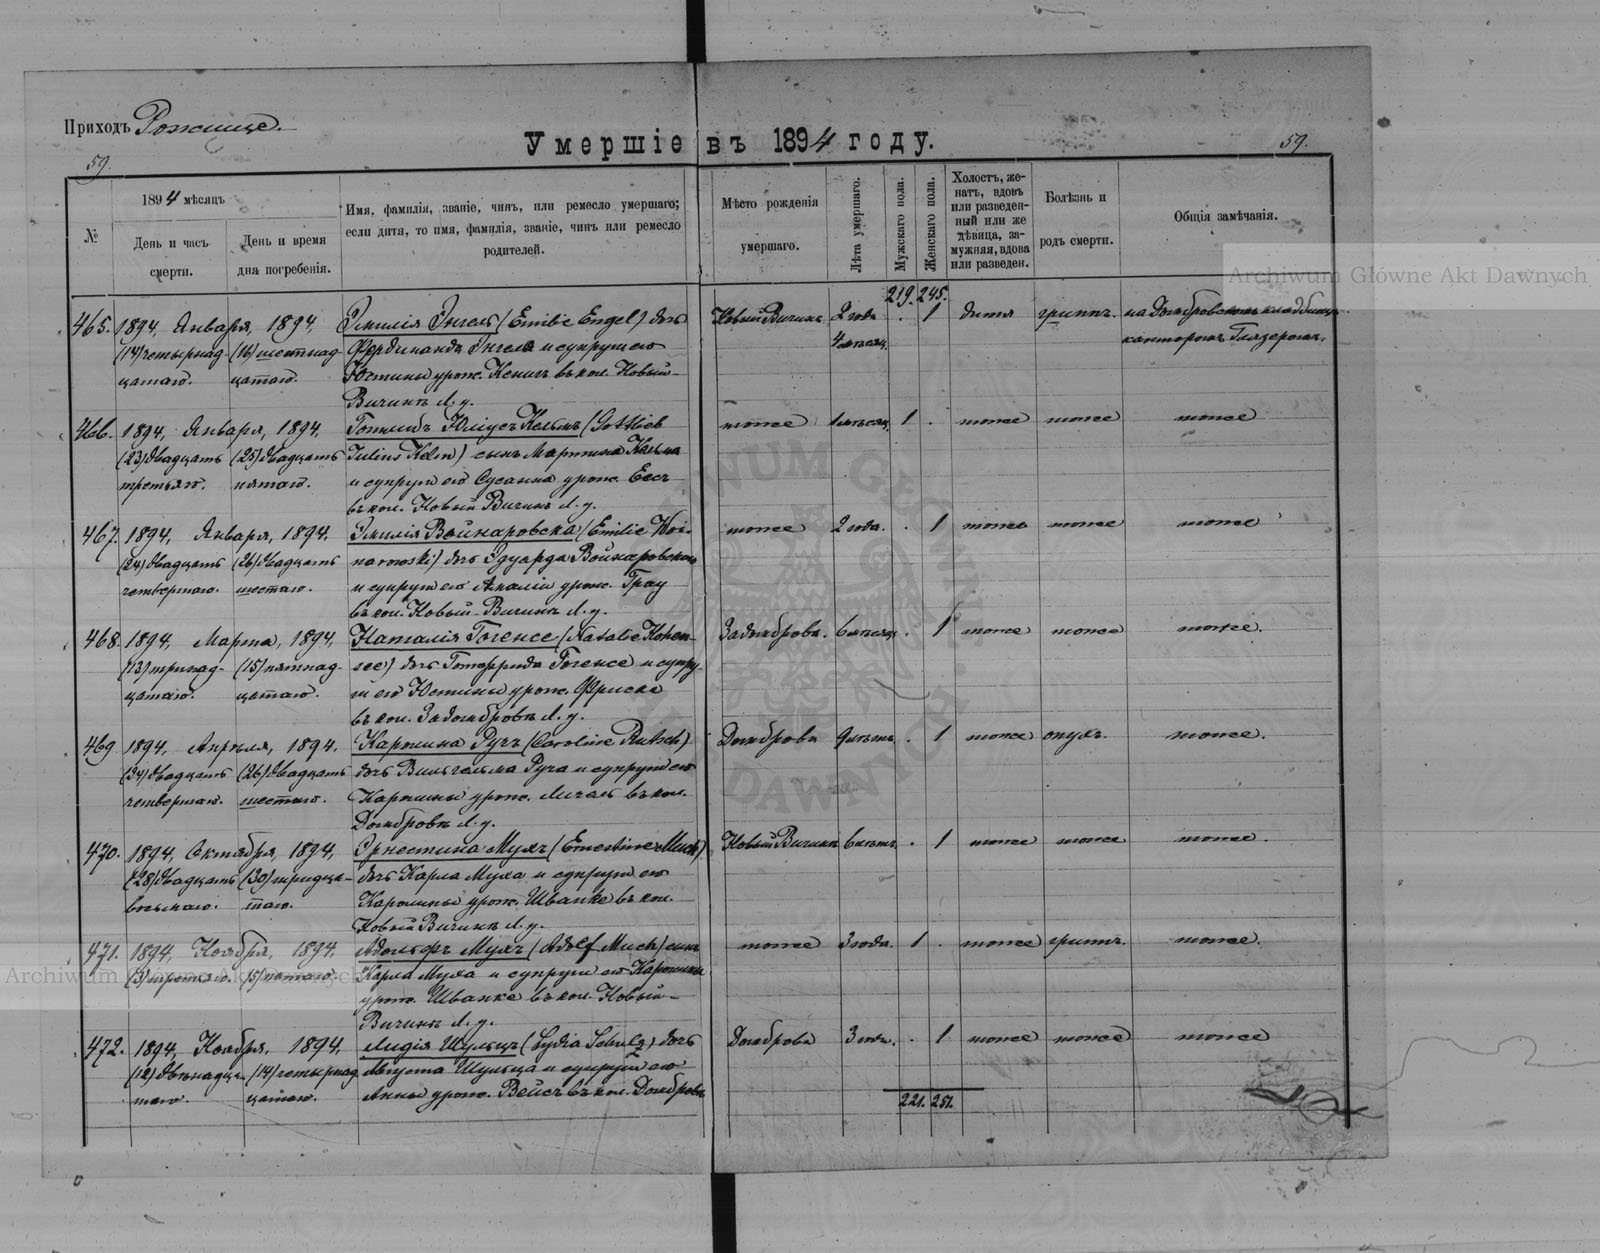 Приходъ Рожище.
Умершіе въ 1894 году.
59.
59.
№
1894 мѣсяцъ
День и часъ смерти.
День и время дня погребенія.
Имя, фамилія, званіе, чинъ, или ремесло умершаго;
если дитя, то имя, фамилія, званіе, чинъ или ремесло
родителей.
Мѣсто рожденія
умершаго.
Лѣта умершаго.
Мужскаго пола.
Женскаго пола.
Холостъ, же-
натъ, вдовъ
или разведен-
ный или же
дѣвица, за-
мужняя, вдова
или разведен.
Болѣзнь и
родъ смерти.
Общія замѣчанія.
Archiwum Główne Akt Dawnych
219. 245.
465. 1894, Января, 1894, Эмилія Энгель (Emilie Engel) дочь Новый Вичинъ 2 года . 1 дитя гриппъ. на Домбровскомъ кладбищѣ
(14) четырнад- (16) шестнад- Фердинанда Энгеля и супруги его 4 мѣсяц. канторомъ Глязеромъ.
цатаго. цатаго. Юстины урож. Кенигъ въ кол. Новый-
Вичинъ Л. у.
466. 1894, Января, 1894, Готлибъ Юліусъ Кельмъ (Gottlieb тоже 1 мѣсяц. 1 . тоже тоже тоже
(23) двадцать (25) двадцать Julius Kelm) сынъ Мартина Кельма
третьяго. пятаго. и супруги его Сусанна урож. Гесъ
въ кол. Новый Вичинъ Л. у.
467. 1894, Января, 1894, Эмилія Войнаровска (Emilie Woi- тоже 2 года. . 1 тоже тоже тоже
(24) двадцать (26) двадцать narowski) дочь Эдуарда Войнаровскаго
четвертаго. шестаго. и супруги его Амаліи урож. Грау
въ кол. Новый-Вичинъ Л. у.
468. 1894, Марта, 1894, Наталія Гогенсе (Natalie Hohen- Задомброва. 6 мѣсяц. . 1 тоже тоже тоже.
(13) тринад- (15) пятнад- see) дочь Готфрида Гогенсе и супру-
цатаго. цатаго. ги его Юстины урож. Фриске
въ кол. Задомбровъ Л. у.
469 1894, Апрѣля, 1894. Каролина Ручъ (Caroline Rutsch) Домброва 9 лѣтъ . 1 тоже опухъ. тоже.
(24) двадцать (26) двадцать дочь Вильгельма Руча и супруги его
четвертаго. шестаго. Каролины урож. въ кол.
Домбровъ Л. у.
470. 1894, Октября, 1894, Эрнестина Мухъ (Ernestine Much) Новый Вичинъ 6 лѣтъ . 1 тоже тоже тоже.
(28) двадцать (30) тридца- дочь Карла Муха и супруги его
восьмаго. таго. Каролины урож. Шванке въ кол.
Новый Вичинъ Л. у.
471. 1894, Ноября, 1894, Адольфъ Мухъ (Adolf Much) сынъ тоже 3 года. 1 . тоже гриппъ. тоже.
(3) третьяго. (5) пятаго. Карла Муха и супруги его Каролины
урож. Шванке въ кол. Новый-
Вичинъ Л. у.
472. 1894, Ноября, 1894, Лидія Шульцъ (Lydia Schulz) дочь Домброва 3 года. . 1 тоже тоже тоже
(12) двѣнадца- (14) четырнад- Августа Шульца и супруги его
таго. цатаго. Анны урож. Вейсъ въ кол. Домбровъ
221. 251.
Archiwum Główne Akt Dawnych